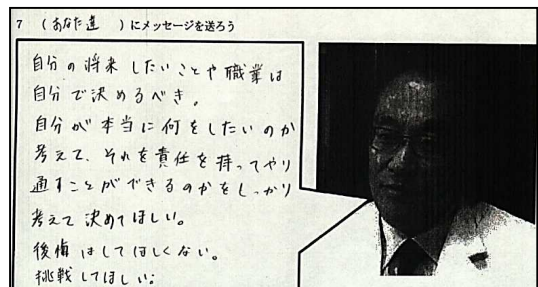 7 (あなた達 )にメッセージを送ろう
自分の将来したいことや職業は
自分で決めるべき。
自分が本当に何をしたいのか
考えて、それを責任を持ってやり
通すことができるのかをしっかり
考えて決めてほしい。
後悔はしてほしくない。
挑戦してほしい。